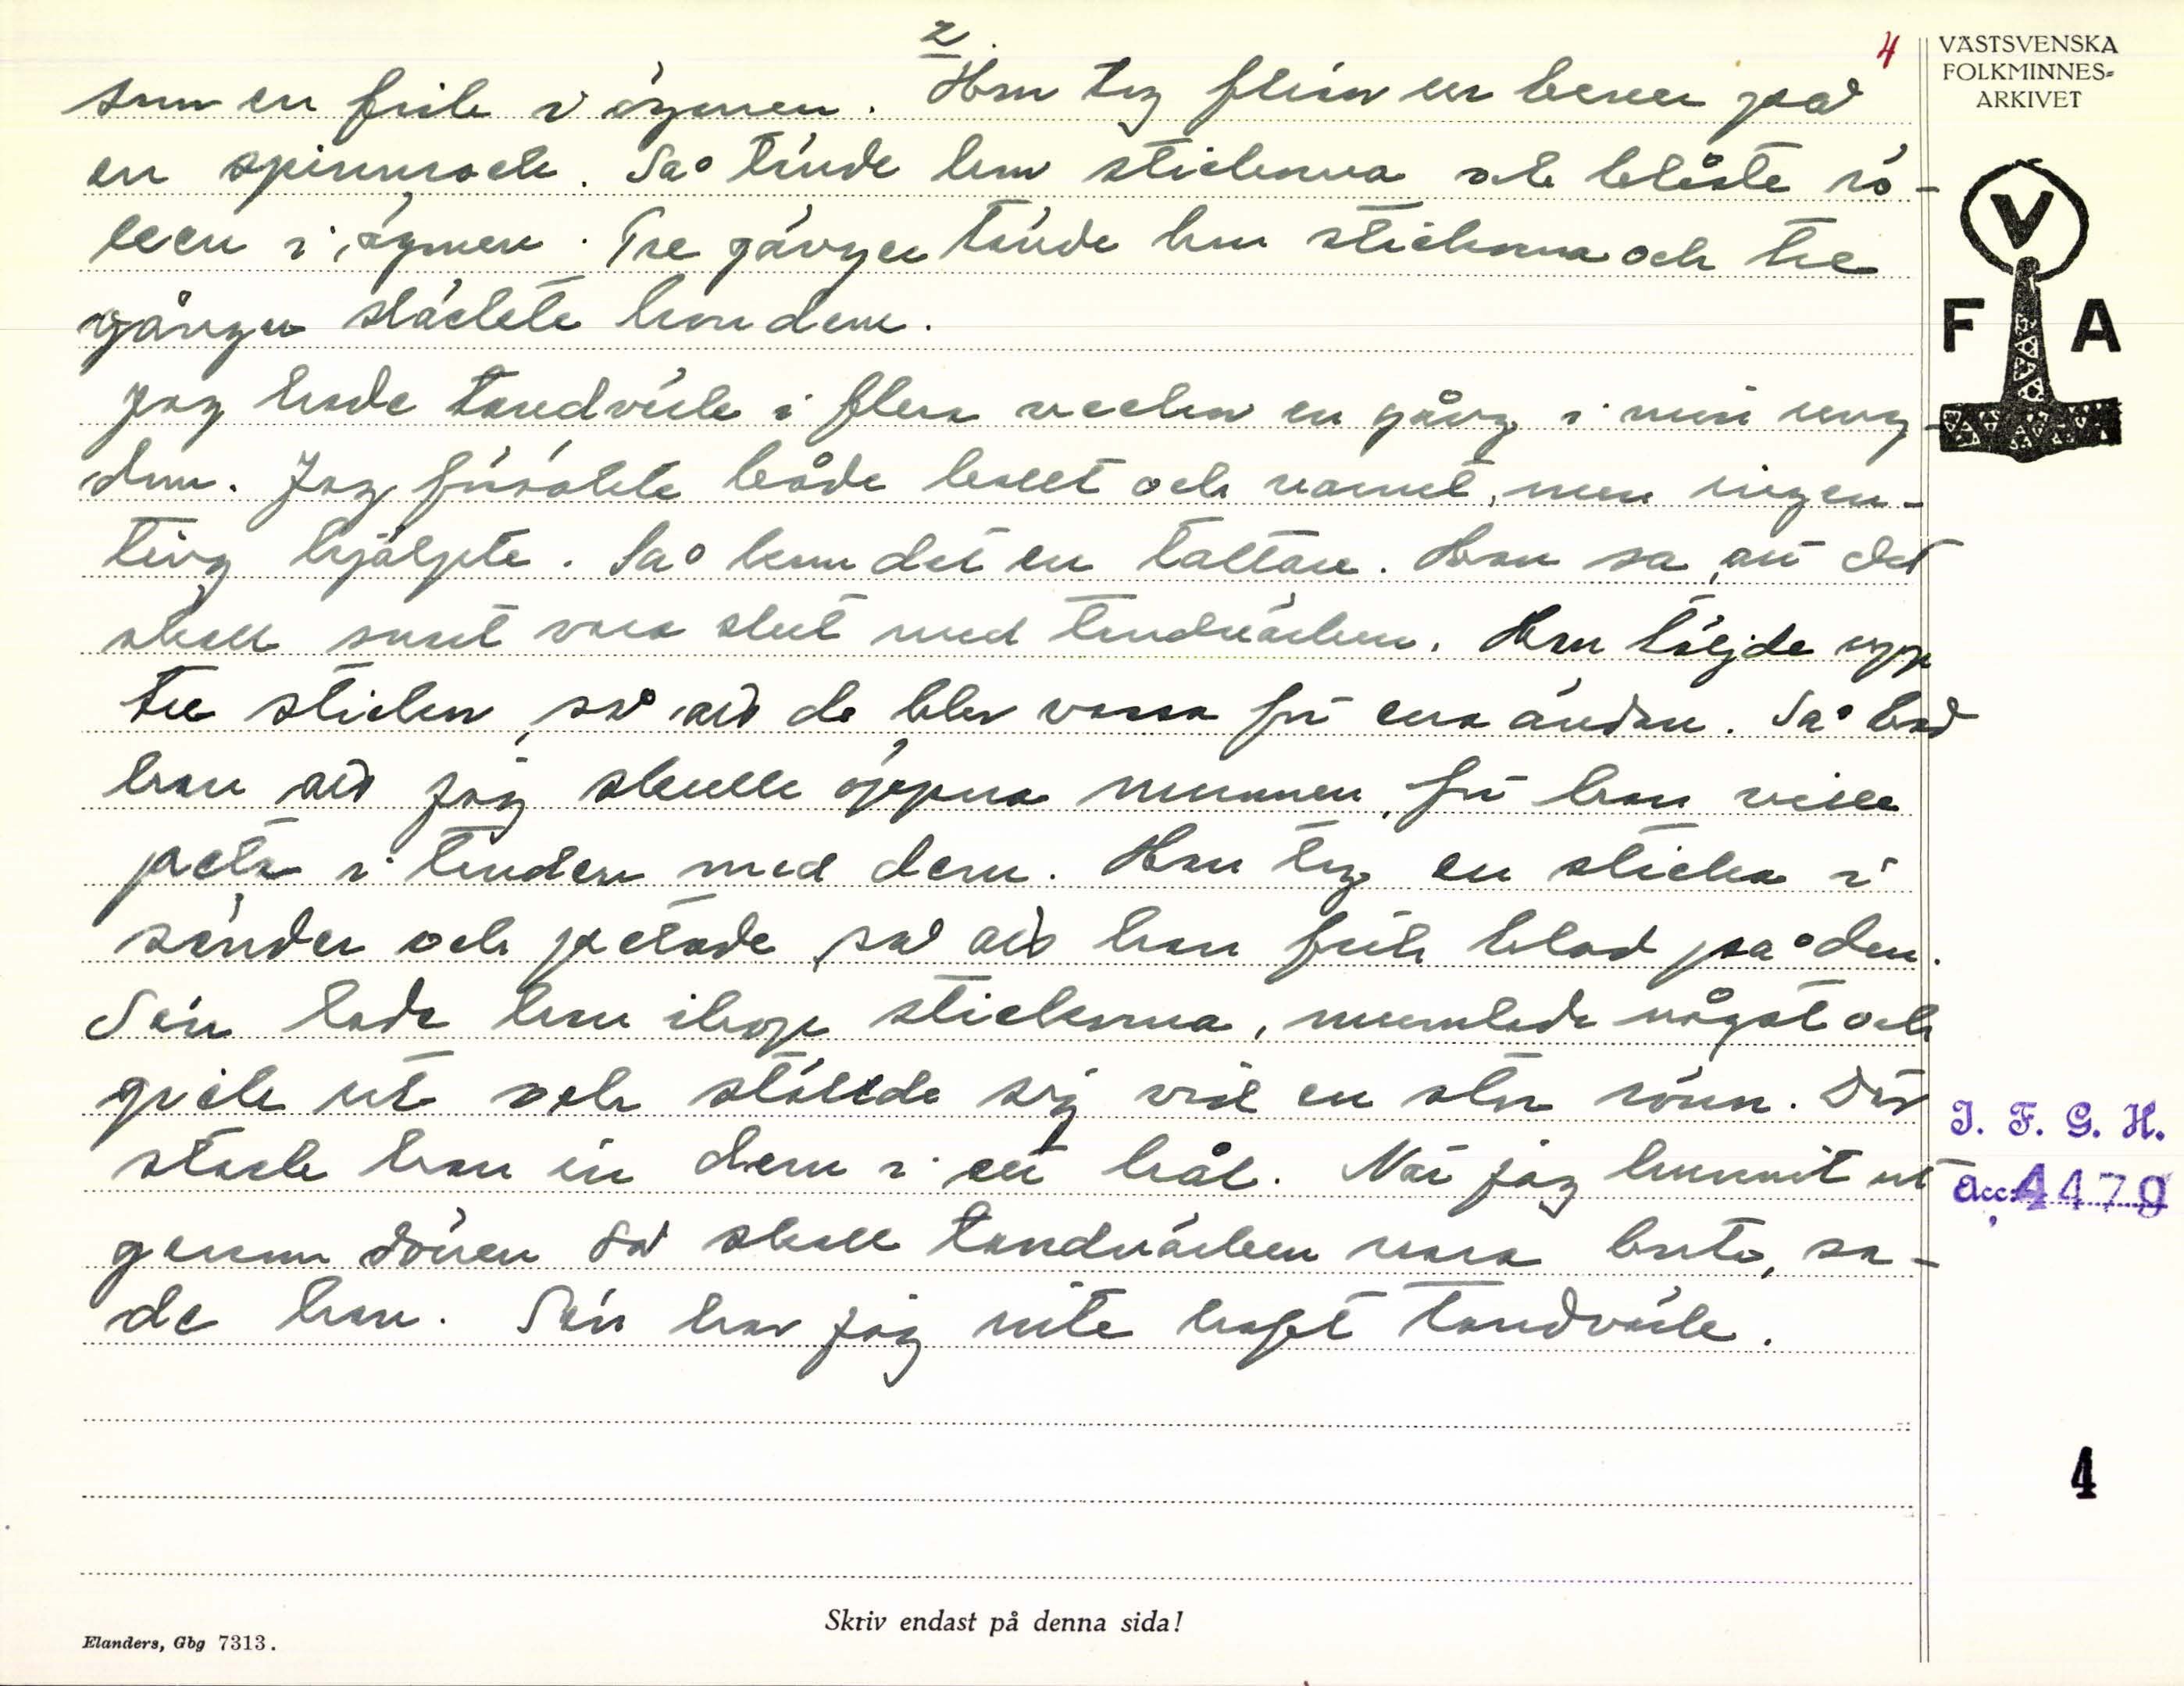 2.
4
VÄSTSVENSKA
FOLKMINNES-
ARKIVET
som en fick i ögonen. Hon tog flisor en bener på
en spinnrock. Så tände hon stickorna och blåste rö-
ken i ögonen. Tre gånger tände hon stickorna och tre
gånger släckte hon dem.
Jag hade tandvärk i flera veckor en gång i min ung-
dom. Jag försökte både kallt och varmt, men ingen-
ting hjälpte. Så kom det en tattare. Han sa, att det
skall snart vara slut med tandvärken. Han täljde upp
tre stickor, så att de blev vassa för ena ändan. Så bad
han att jag skulle öppna munnen, för han ville
peta i tanden med dem. Han tog en sticka i
sänder och petade, så att han fick blod på den.
Sen lade han ihop stickorna, mumlade något och
gick ut och ställde sig vid en stor rönn. Där
stack han in dem i ett hål. När jag hunnit ut
genom dörren så skall tandvärken vara borta, sa-
de han. Sen har jag inte haft tandvärk.
V
F A
I. F. G. H.
Acc. 4479
4
Skriv endast på denna sida!
Elanders, Gbg 7313.